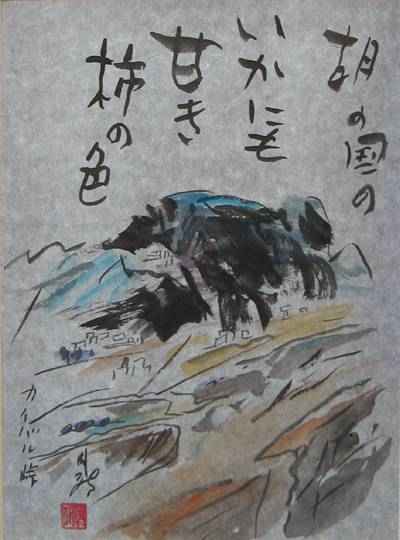 胡の国の
いかにも
甘き
柿の色
カイバル峠